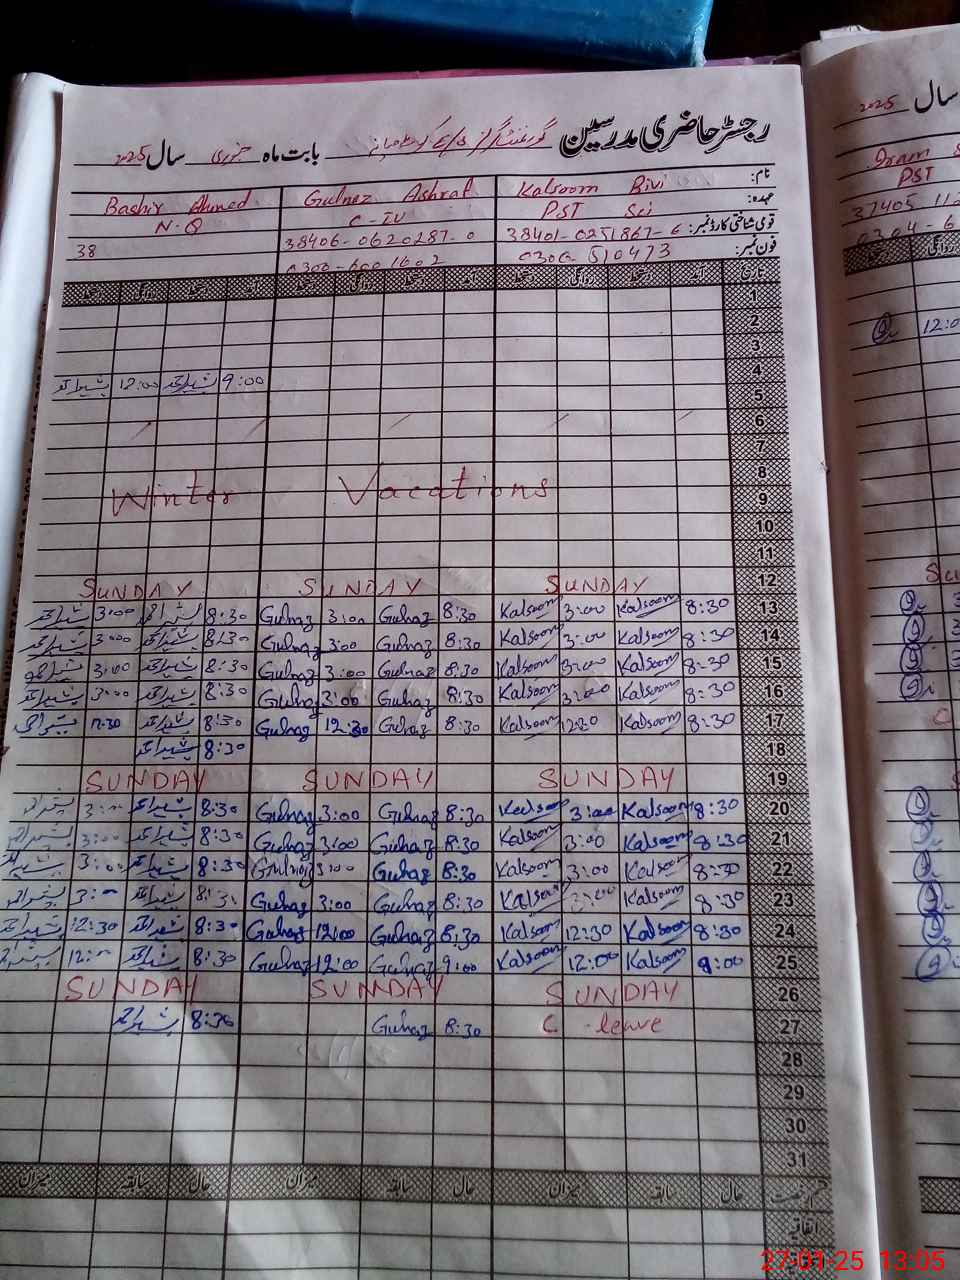 رجسٹر حاضری مدرسین بابت ماہ جنوری سال 2025
نام: Kalsoom Bivi Gulnaz Ashraf Bashir Ahmed
عہدہ: PST Sci C-IV N.Q
قومی شناختی کارڈ نمبر: 38401-0251867-6 38406-0620287-0 38
فون نمبر: 0300-510473 0300-6001602
تاریخ آمد دستخط روانگی دستخط آمد دستخط روانگی دستخط آمد دستخط روانگی دستخط
1
2
3
4
5 9:00 بشیر احمد 12:00 بشیر احمد
6
7
8
9 Winter Vacations
10
11
12 SUNDAY SUNDAY SUNDAY
13 8:30 Kalsoom 3:00 Kalsoom 8:30 Gulnaz 3:00 Gulnaz 8:30 بشیر احمد 3:00 بشیر احمد
14 8:30 Kalsoom 3:00 Kalsoom 8:30 Gulnaz 3:00 Gulnaz 8:30 بشیر احمد 3:00 بشیر احمد
15 8:30 Kalsoom 3:00 Kalsoom 8:30 Gulnaz 3:00 Gulnaz 8:30 بشیر احمد 3:00 بشیر احمد
16 8:30 Kalsoom 3:00 Kalsoom 8:30 Gulnaz 3:00 Gulnaz 8:30 بشیر احمد 3:00 بشیر احمد
17 8:30 Kalsoom 12:30 Kalsoom 8:30 Gulnaz 12:30 Gulnaz 8:30 بشیر احمد 12:30 بشیر احمد
18 8:30 بشیر احمد
19 SUNDAY SUNDAY SUNDAY
20 8:30 Kalsoom 3:00 Kalsoom 8:30 Gulnaz 3:00 Gulnaz 8:30 بشیر احمد 3:00 بشیر احمد
21 8:30 Kalsoom 3:00 Kalsoom 8:30 Gulnaz 3:00 Gulnaz 8:30 بشیر احمد 3:00 بشیر احمد
22 8:30 Kalsoom 3:00 Kalsoom 8:30 Gulnaz 3:00 Gulnaz 8:30 بشیر احمد 3:00 بشیر احمد
23 8:30 Kalsoom 3:00 Kalsoom 8:30 Gulnaz 3:00 Gulnaz 8:30 بشیر احمد 3:00 بشیر احمد
24 8:30 Kalsoom 12:30 Kalsoom 8:30 Gulnaz 12:00 Gulnaz 8:30 بشیر احمد 12:30 بشیر احمد
25 9:00 Kalsoom 12:00 Kalsoom 9:00 Gulnaz 12:00 Gulnaz 8:30 بشیر احمد 12:00 بشیر احمد
26 SUNDAY SUNDAY SUNDAY
27 C - leave 8:30 Gulnaz 8:30 بشیر احمد
28
29
30
31
قسم رخصت حال سابقہ میزان حال سابقہ میزان حال سابقہ میزان
اتفاقیہ
سال 2025
Iram
PST
37405 112
0304-6
روانگی
12:0
27-01-25 13:05